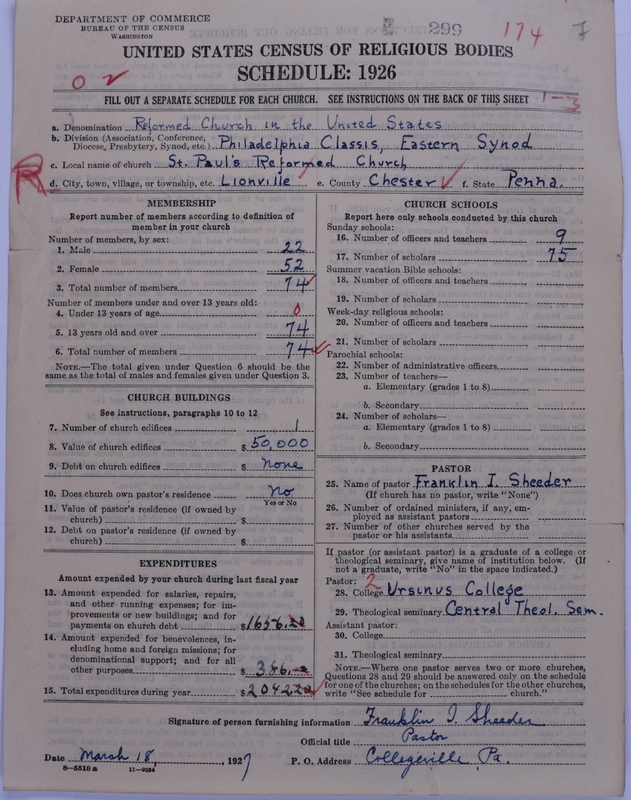 DEPARTMENT OF COMMERCE
BUREAU OF THE CENSUS
WASHINGTON
299
174
7
UNITED STATES CENSUS OF RELIGIOUS BODIES
SCHEDULE: 1926
FILL OUT A SEPARATE SCHEDULE FOR EACH CHURCH. SEE INSTRUCTIONS ON THE BACK OF THIS SHEET
1-3
a. Denomination Reformed Church in the United States
b. Division (Association, Conference, Diocese, Presbytery, Synod, etc.) Philadelphia Classis, Eastern Synod
c. Local name of church St. Paul's Reformed Church
R
d. City, town, village, or township, etc. Lionville e. County Chester f. State Penna.
MEMBERSHIP
Report number of members according to definition of
member in your church
Number of members, by sex:
1. Male 22
2. Female 52
3. Total number of members 74
Number of members under and over 13 years old:
4. Under 13 years of age 0
5. 13 years old and over 74
6. Total number of members 74
NOTE.—The total given under Question 6 should be
same as the total of males and females given under Question 3.
CHURCH BUILDINGS
See instructions, paragraphs 10 to 12
7. Number of church edifices 1
8. Value of church edifices $ 50,000
9. Debt on church edifices $ none
10. Does church own pastor's residence No
Yes or No
11. Value of pastor's residence (if owned by
church) $
12. Debt on pastor's residence (if owned by
church) $
EXPENDITURES
Amount expended by your church during last fiscal year
13. Amount expended for salaries, repairs,
and other running expenses; for im-
provements or new buildings; and for
payments on church debt $ 1656.20
14. Amount expended for benevolences, in-
cluding home and foreign missions; for
denominational support; and for all
other purposes $ 386.
15. Total expenditures during year $ 2042.20
CHURCH SCHOOLS
Report here only schools conducted by this church
Sunday schools:
16. Number of officers and teachers 9
17. Number of scholars 75
Summer vacation Bible schools:
18. Number of officers and teachers
19. Number of scholars
Week-day religious schools:
20. Number of officers and teachers
21. Number of scholars
Parochial schools:
22. Number of administrative officers
23. Number of teachers—
a. Elementary (grades 1 to 8)
b. Secondary
24. Number of scholars—
a. Elementary (grades 1 to 8)
b. Secondary
PASTOR
25. Name of pastor Franklin I. Sheeder
(If church has no pastor, write "None")
26. Number of ordained ministers, if any, em-
ployed as assistant pastors
27. Number of other churches served by the
pastor or his assistants
If pastor (or assistant pastor) is a graduate of a college or
theological seminary, give name of institution below. (If
not a graduate, write "No" in the space indicated.)
Pastor: 2
28. College Ursinus College
29. Theological seminary Central Theol. Sem.
Assistant pastor:
30. College
31. Theological seminary
NOTE.—Where one pastor serves two or more churches,
Questions 28 and 29 should be answered only on the schedule
for one of the churches; on the schedules for the other churches,
write "See schedule for church."
Signature of person furnishing information Franklin I. Sheeder
Official title Pastor
Date March 18, 1927 P. O. Address Collegeville Pa.
8-5518a 11-9054